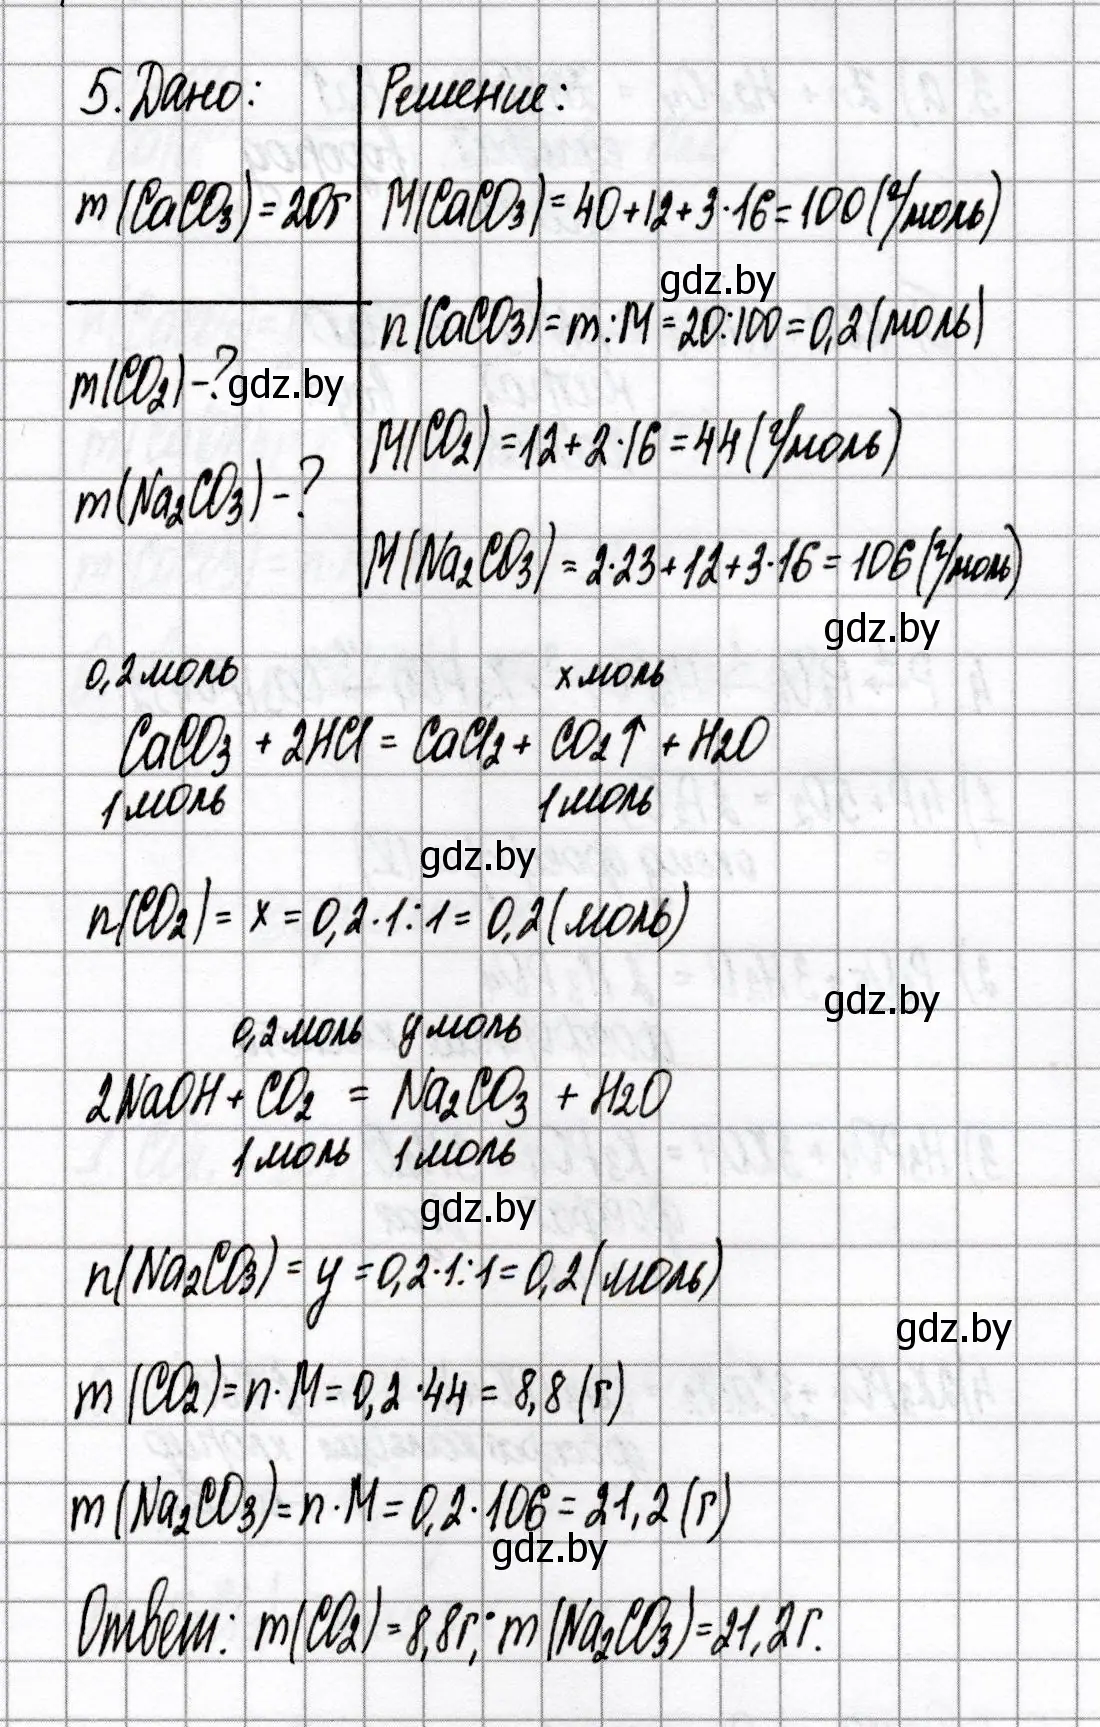 5. Дано:
Решение:
m(CaCO3) = 20г
M(CaCO3) = 40+12+3·16 = 100 (г/моль)
gdz.by
n(CaCO3) = m:M = 20:100 = 0,2 (моль)
m(CO2) - ?
gdz.by
M(CO2) = 12 + 2·16 = 44 (г/моль)
m(Na2CO3) - ?
M(Na2CO3) = 2·23+12+3·16 = 106 (г/моль)
gdz.by
0,2 моль x моль
CaCO3 + 2HCl = CaCl2 + CO2↑ + H2O
1 моль 1 моль
gdz.by
n(CO2) = x = 0,2·1:1 = 0,2 (моль)
gdz.by
0,2 моль y моль
2NaOH + CO2 = Na2CO3 + H2O
1 моль 1 моль
gdz.by
n(Na2CO3) = y = 0,2·1:1 = 0,2 (моль)
gdz.by
m(CO2) = n·M = 0,2·44 = 8,8 (г)
m(Na2CO3) = n·M = 0,2·106 = 21,2 (г)
gdz.by
Ответ: m(CO2) = 8,8г; m(Na2CO3) = 21,2г.